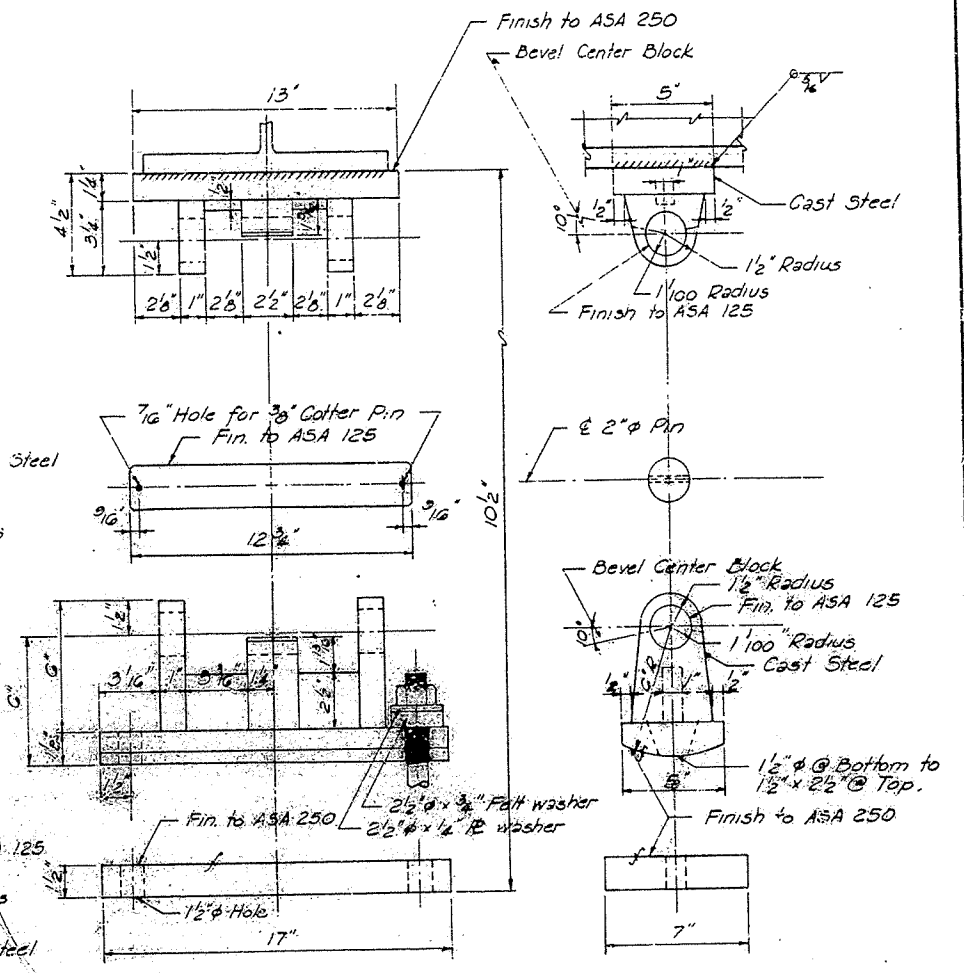 Finish to ASA 250
Bevel Center Block
13"
5"
5/16
1 1/4"
4 1/2"
3 1/4"
1 1/2"
1/2"
2 1/8" 1" 2 1/8" 2 1/2" 2 1/8" 1" 2 1/8"
10°
1/2"
1"
1/2"
Cast Steel
1 1/2" Radius
1 1/100 Radius
Finish to ASA 125
7/16" Hole for 3/8" Cotter Pin
Fin. to ASA 125
Steel
9/16"
9/16"
12 3/4"
10 1/2"
℄ 2"φ Pin
Bevel Center Block
1 1/2" Radius
Fin. to ASA 125
1 1/100" Radius
Cast Steel
10°
6" R
1/2"
1"
1/2"
5"
1 1/2" φ @ Bottom to
1 1/2" x 2 1/2" @ Top.
1 1/2"
6"
6"
3 1/16" 1" 3 1/16" 1 1/4"
1 13/16"
2 1/2"
1 1/2"
1 1/2"
2 1/2"φ x 3/4" Felt washer
2 1/2"φ x 1/4" PL washer
Fin. to ASA 250
Finish to ASA 250
125
1 1/2"
1 1/2"φ Hole
17"
7"
teel